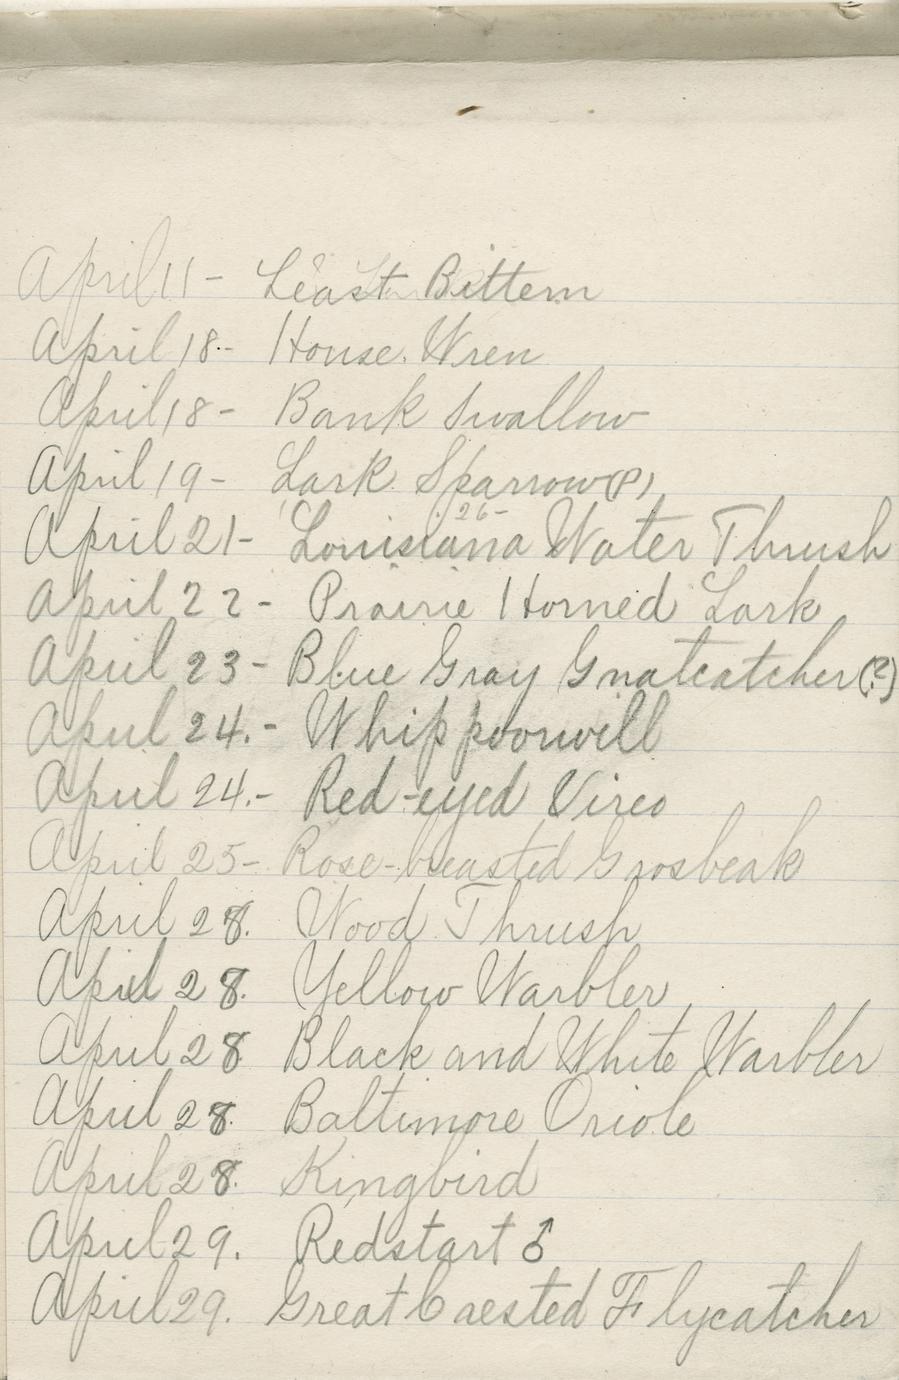 April 11 - Least Bittern
April 18 - House Wren
April 18 - Bank Swallow
April 19 - Lark Sparrow (?)
26-
April 21 - Louisiana Water Thrush
April 22 - Prairie Horned Lark
April 23 - Blue Gray Gnatcatcher (?)
April 24. - Whippoorwill
April 24. - Red-eyed Vireo
April 25 - Rose-breasted Grosbeak
April 28. Wood Thrush
April 28. Yellow Warbler
April 28 Black and White Warbler
April 28. Baltimore Oriole
April 28. Kingbird
April 29. Redstart ♂
April 29. Great Crested Flycatcher